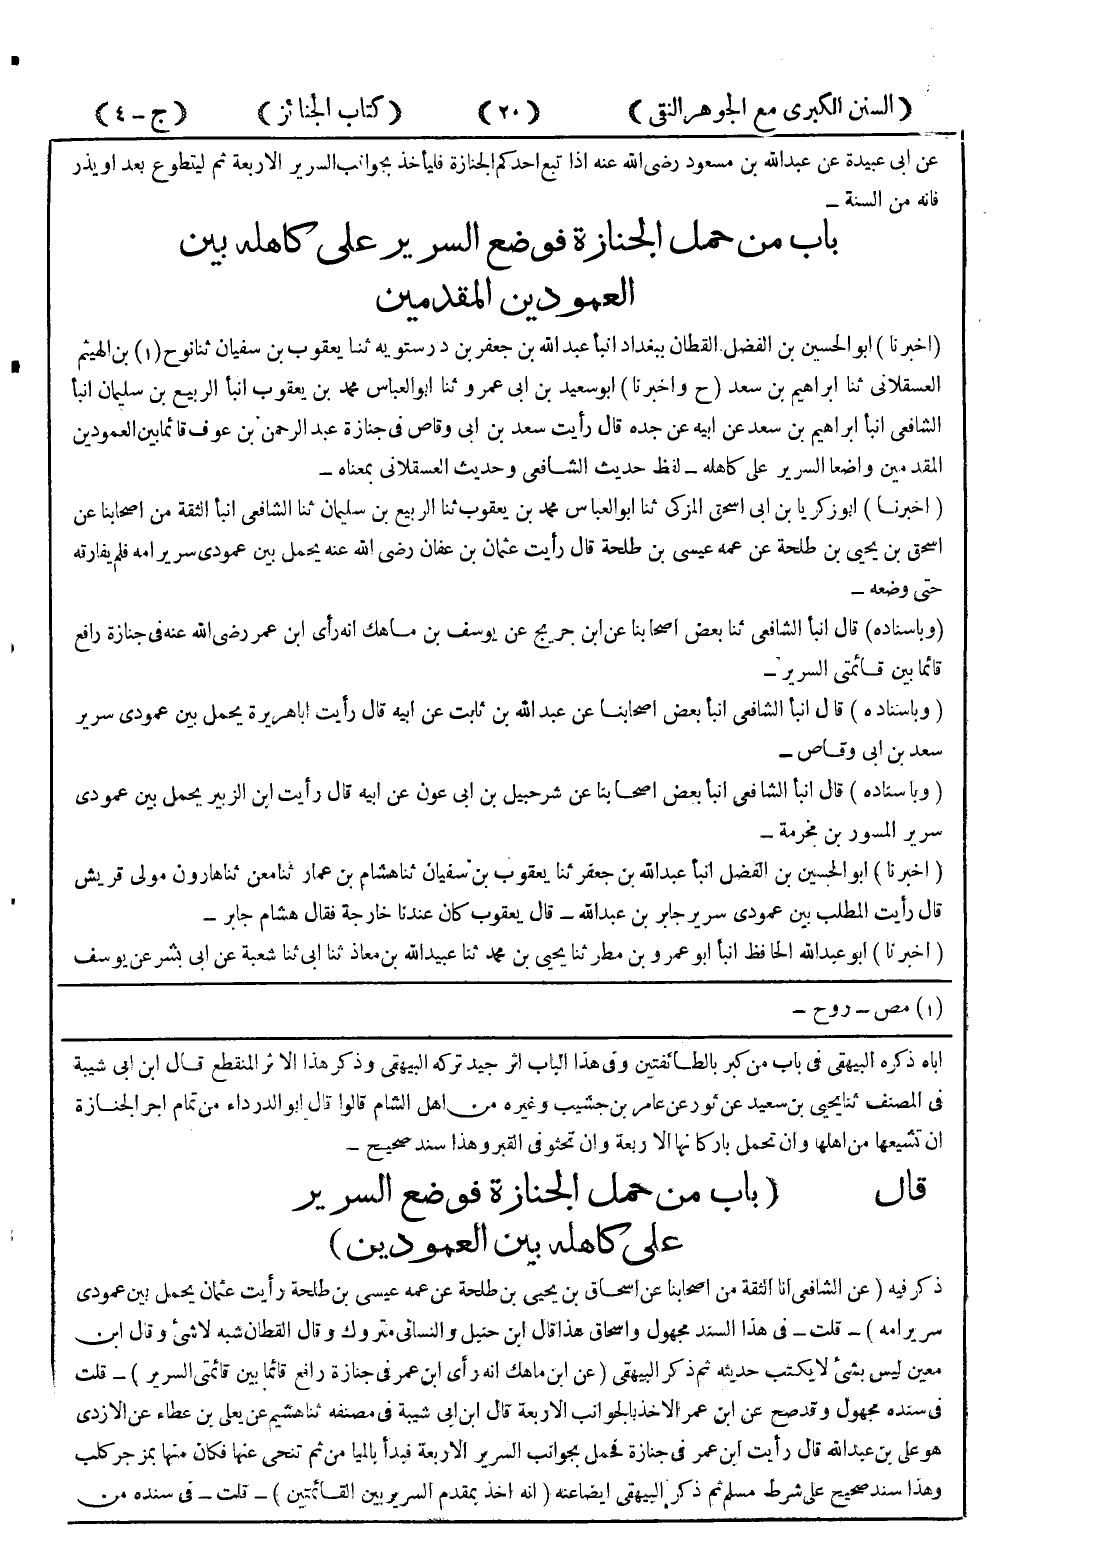 (السنن الكبرى مع الجوهر النقى) (٢٠) (كتاب الجنائز) (ج ـ ٤)
عن ابى عبيدة عن عبدالله بن مسعود رضى الله عنه اذا تبع احدكم الجنازة فليأخذ بجوانب السرير الاربعة ثم ليتطوع بعد او يذر
فانه من السنة ـ
باب من حمل الجنازة فوضع السرير على كاهله بين
العمودين المقدمين
(اخبرنا) ابو الحسين بن الفضل القطان ببغداد انبأ عبدالله بن جعفر بن درستويه ثنا يعقوب بن سفيان ثنا نوح (١) بن الهيثم
العسقلانى ثنا ابراهيم بن سعد (ح واخبرنا) ابو سعيد بن ابى عمرو ثنا ابو العباس محمد بن يعقوب انبأ الربيع بن سليمان انبأ
الشافعى انبأ ابراهيم بن سعد عن ابيه عن جده قال رأيت سعد بن ابى وقاص فى جنازة عبد الرحمن بن عوف قائما بين العمودين
المقدمين واضعا السرير على كاهله ـ لفظ حديث الشافعى وحديث العسقلانى بمعناه ـ
(اخبرنا) ابو زكريا بن ابى اسحق المزكى ثنا ابو العباس محمد بن يعقوب ثنا الربيع بن سليمان ثنا الشافعى انبأ الثقة من اصحابنا عن
اسحق بن يحيى بن طلحة عن عمه عيسى بن طلحة قال رأيت عثمان بن عفان رضى الله عنه يحمل بين عمودى سرير امه فلم يفارقه
حتى وضعه ـ
(وباسناده) قال انبأ الشافعى ثنا بعض اصحابنا عن ابن جريج عن يوسف بن ماهك انه رأى ابن عمر رضى الله عنه فى جنازة رافع
قائما بين قائمتى السرير ـ
(وباسناده) قال انبأ الشافعى انبأ بعض اصحابنا عن عبدالله بن ثابت عن ابيه قال رأيت اباهريرة يحمل بين عمودى سرير
سعد بن ابى وقاص ـ
(وباسناده) قال انبأ الشافعى انبأ بعض اصحابنا عن شرحبيل بن ابى عون عن ابيه قال رأيت ابن الزبير يحمل بين عمودى
سرير المسور بن مخرمة ـ
(اخبرنا) ابو الحسين بن الفضل انبأ عبدالله بن جعفر ثنا يعقوب بن سفيان ثنا هشام بن عمار ثنا معن ثنا هارون مولى قريش
قال رأيت المطلب بين عمودى سرير جابر بن عبدالله ـ قال يعقوب كان عندنا خارجة فقال هشام جابر ـ
(اخبرنا) ابو عبدالله الحافظ انبأ ابو عمرو بن مطر ثنا يحيى بن محمد ثنا عبيدالله بن معاذ ثنا ابى ثنا شعبة عن ابى بشر عن يوسف
(١) مص ـ روح ـ
اباه ذكره البيهقى فى باب من كبر بالطائفتين وفى هذا الباب اثر جيد تركه البيهقى وذكر هذا الاثر المنقطع قال ابن ابى شيبة
فى المصنف ثنا يحيى بن سعيد عن ثور عن عامر بن جشيب وغيره من اهل الشام قالوا قال ابو الدرداء من تمام اجر الجنازة
ان تشيعها من اهلها وان تحمل باركانها الاربعة وان تحثو فى القبر وهذا سند صحيح ـ
قال (باب من حمل الجنازة فوضع السرير
على كاهله بين العمودين)
ذكر فيه (عن الشافعى انا الثقة من اصحابنا عن اسحاق بن يحيى بن طلحة عن عمه عيسى بن طلحة رأيت عثمان يحمل بين عمودى
سرير امه) ـ قلت ـ فى هذا السند مجهول واسحاق هذا قال ابن حنبل والنسائى متروك وقال القطان شبه لاشئ وقال ابن
معين ليس بشئ لا يكتب حديثه ثم ذكر البيهقى (عن ابن ماهك انه رأى ابن عمر فى جنازة رافع قائما بين قائمتى السرير) ـ قلت
فى سنده مجهول وقد صح عن ابن عمر الاخذ بالجوانب الاربعة قال ابن ابى شيبة فى مصنفه ثنا هشيم عن يعلى بن عطاء عن الازدى
هو على بن عبدالله قال رأيت ابن عمر فى جنازة فحمل بجوانب السرير الاربعة فبدأ بالميا من ثم تنحى عنها فكان منها بمزجر كلب
وهذا سند صحيح على شرط مسلم ثم ذكر البيهقى ايضا عنه (انه اخذ بمقدم السرير بين القائمتين) ـ قلت ـ فى سنده من